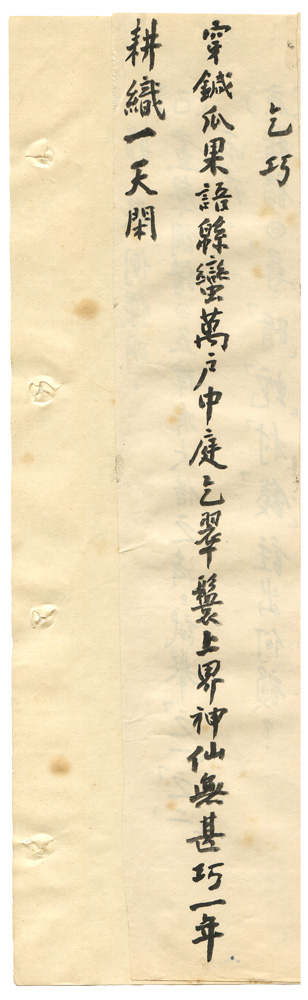 乞巧
穿鍼瓜果語緜蠻萬户中庭乞翠鬟上界神仙無甚巧一年
耕織一天閑